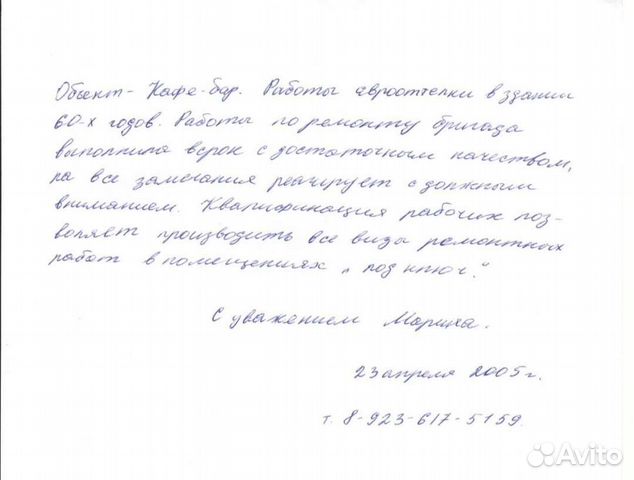 Объект - Кафе-бар. Работы евроотделки в здании
60-х годов. Работы по ремонту бригада
выполнила всрок с достаточным качеством,
на все замечания реагирует с должным
вниманием. Квалификация рабочих поз-
воляет производить все виды ремонтных
работ в помещениях „под ключ".
С уважением Марина.
23 апреля 2005 г.
т. 8-923-617-5159.
Avito